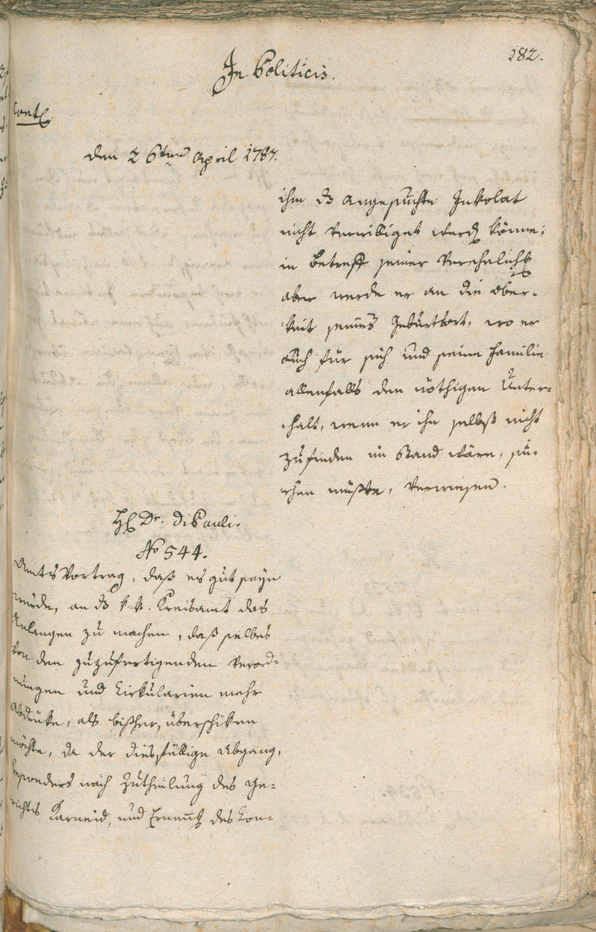 182.
In Politicis.
Cont
den 26ten April 1787.
ihm ds angesuchte Inkolat
nicht verwilliget werden könne;
in Betreff seiner Verehelichg
aber werde er an die Ober-
keit seines Geburtsort, wo er
auch für sich und seine Familie
allenfalls den nöthigen Unter-
halt, wenn er ihn selbst nicht
zufinden im Stand wäre, su-
chen müßte, verwiesen.
H Dr. di Pauli.
No 544.
Amts Vortrag, daß es gut seyn
würde, an ds k. k. Kreisamt das
Anlangen zu machen, daß selbes
von den zuzufertigenden Verord-
nungen und Cirkularien mehr
Abdrüke, als bißher, überschiken
möchte, da der diesfällige Abgang,
besonders nach Zutheilung des Ge-
richts Karneid, und Ernenng des Con-